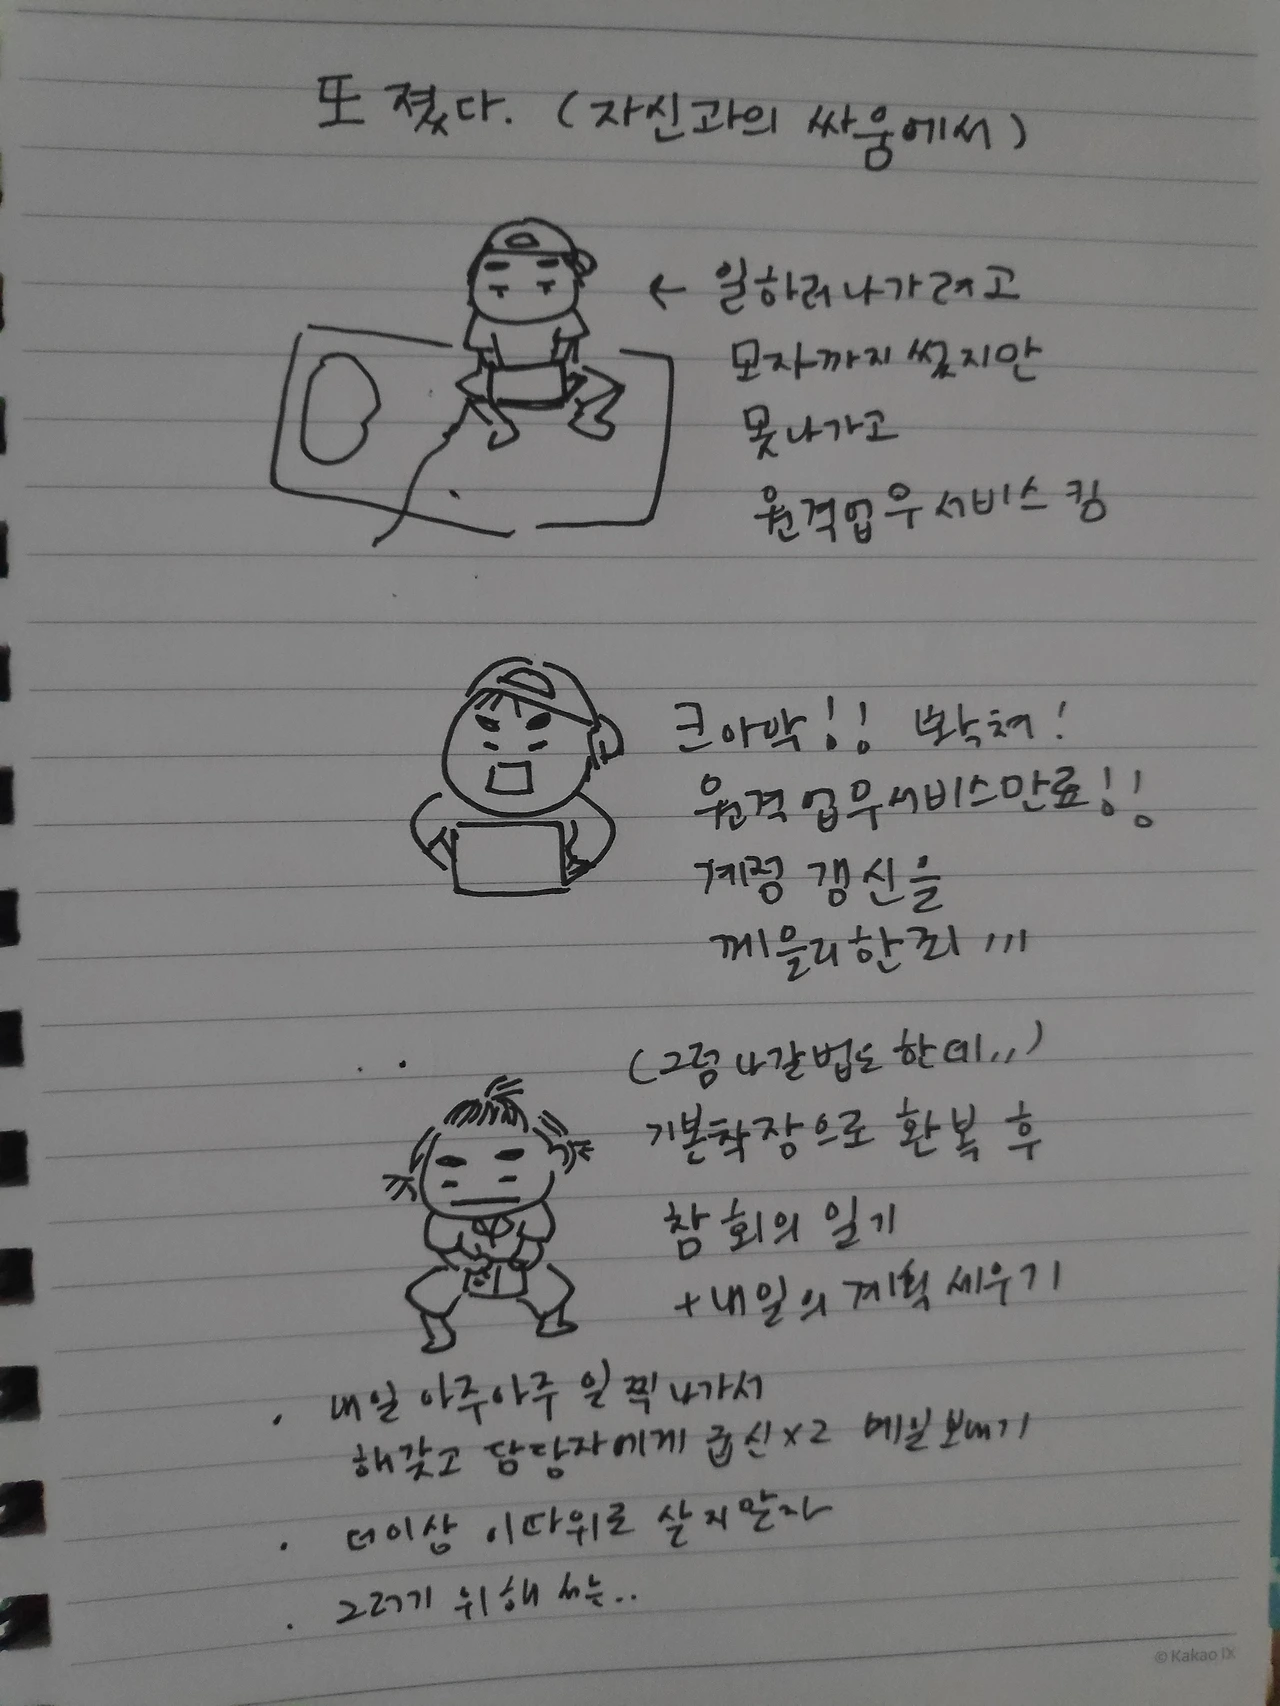 또 졌다. (자신과의 싸움에서)
← 일하러나가려고
모자까지 썼지만
못나가고
원격업무서비스 킴
크아악!! 뽝쳐!
원격업무서비스만료!!
계정 갱신을
께을리한죄 ...
(그럼 나갈법도 한데..)
기본착장으로 환복 후
참회의 일기
+내일의 계획 세우기
· 내일 아주아주 일찍나가서
해갖고 담당자에게 굽신x2 메일보내기
· 더이상 이따위로 살지말자
· 그러기 위해서는..
© Kakao IX